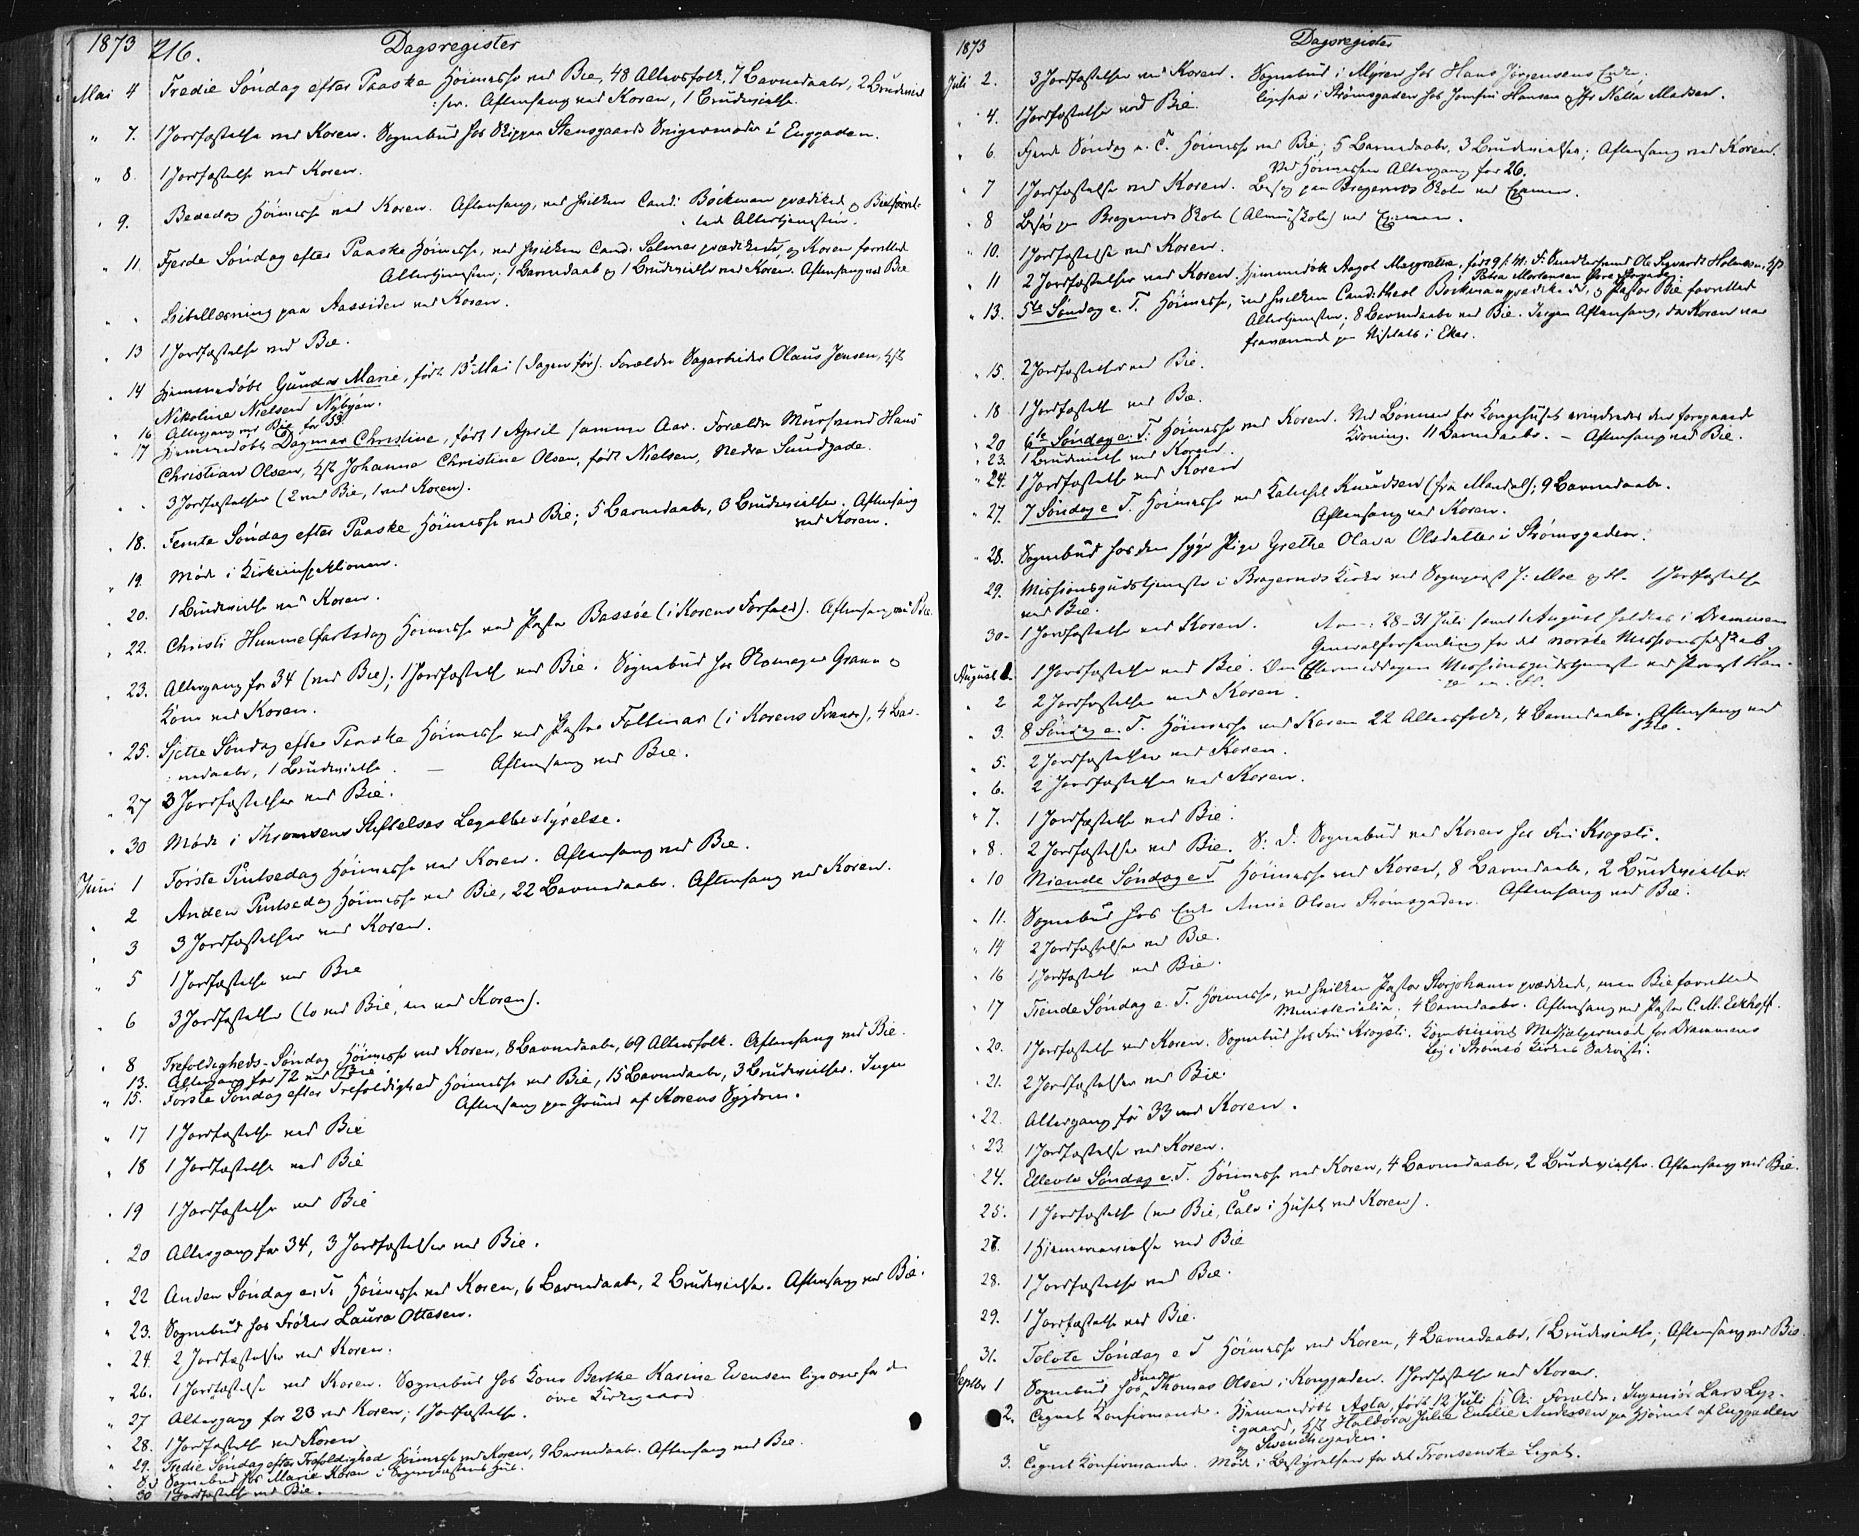 1873 216. Dagsregister
Mai 4 Tredie Søndag efter Paaske Høimesse ved Bie, 48 Altersfolk, 7 Barnedaabe, 2 Brudeviel-
:ser. Aftensang ved Koren, 1 Brudevielse.
" 7. 1 Jordfæstelse ved Koren. Sognebud hos Skipper Stensgaards Svigermoder i Enggaden.
" 8. 1 Jordfæstelse ved Koren.
" 9. Bededag Høimesse ved Koren. Aftensang, ved hvilken Cand. Böckman prædiked og Bie forret-
tede Altertjenesten.
" 11. Fjerde Søndag efter Paaske Høimesse, ved hvilken Cand. Salmer prædikede, og Koren forrettede
Altertjenesten; 1 Barnedaab og 1 Brudevielse ved Koren. Aftensang ved Bie
" " Bibellæsning paa Aassiden ved Koren.
" 13 1 Jordfæstelse ved Bie.
" 14 Hjemmedøbt Gunda Marie, født 13de Mai (Dagen før). Forældre Sagarbeider Olaus Jensen, Hst
Nikoline Nielsen Nybyen.
" 16 Altergang ved Bie for 53.
" 17 Hjemmedøbt Dagmar Christine, født 1 April samme Aar. Forældre Mursvend Hans
Christian Olsen, Hst Johanne Christine Olsen, født Nielsen, Nedre Sundgade.
" " 3 Jordfæstelser (2 ved Bie, 1 ved Koren).
" 18. Femte Søndag efter Paaske Høimesse ved Bie; 5 Barnedaabe, 3 Brudevielser. Aftensang
ved Koren.
" 19. Møde i Kirkeinspektionen.
" 20. 1 Brudevielse ved Koren.
" 22. Christi Himmelfartsdag Høimesse ved Pastor Bassøe (i Korens Forfald). Aftensang ved Bie.
" 23. Altergang for 34 (ved Bie); 1 Jordfæstelse ved Bie. Sognebud hos Romager Gran og
Kone ved Koren.
" 25. Sjette Søndag efter Paaske Høimesse ved Pastor Follinar (i Korens Fravær), 4 Bar-
: nedaabe, 1 Brudevielse. — Aftensang ved Bie.
" 27 3 Jordfæstelser ved Bie.
" 30 Møde i Thromsens Stiftelses Legatbestyrelse.
Juni 1 Første Pintsedag Høimesse ved Koren. Aftensang ved Bie.
" 2 Anden Pintsedag Høimesse ved Bie, 22 Barnedaabe. Aftensang ved Koren.
" 3 3 Jordfæstelser ved Koren.
" 5 1 Jordfæstelse ved Bie
" 6 3 Jordfæstelser (to ved Bie, en ved Koren).
" 8 Trefoldigheds-Søndag Høimesse ved Koren, 8 Barnedaabe, 69 Altersfolk. Aftensang ved Bie.
" 13. Altergang for 72 ved Bie
" 15. Første Søndag efter Trefoldighed Høimesse ved Bie, 15 Barnedaabe, 3 Brudevielser. Ingen
Aftensang paa Grund af Korens Sygdom.
" 17 1 Jordfæstelse ved Bie
" 18 1 Jordfæstelse ved Bie
" 19 1 Jordfæstelse ved Bie
" 20 Altergang for 34, 3 Jordfæstelser ved Bie.
" 22 Anden Søndag e. T. Høimesse ved Koren, 6 Barnedaabe, 2 Brudevielser. Aftensang ved Bie.
" 23. Sognebud hos Frøken Laura Ottesen.
" 24. 2 Jordfæstelser ved Koren.
" 26. 1 Jordfæstelse ved Koren. Sognebud hos Kone Berthe Karine Evensen ligeoverfor den
øvre Kirkegaard
" 27 Altergang for 23 ved Koren; 1 Jordfæstelse.
" 28. 1 Jordfæstelse ved Koren
" 29. Tredie Søndag efter Trefoldighed Høimesse ved Koren, 9 Barnedaabe. Aftensang ved Bie.
S. D. Sognebud hos Marie Koren i Sognepræstens Hus.
" 30 1 Jordfæstelse ved Bie.
1873 Dagsregister
Juli 2. 3 Jordfæstelser ved Koren. Sognebud i Myren hos Hans Jørgensens Enke,
ligesaa i Strømsgaden hos Jomfru Hansen og hos Nella Madsen.
" 4. 1 Jordfæstelse ved Bie.
" 6. Fjerde Søndag e. T. Høimesse ved Bie; 5 Barnedaabe, 3 Brudevielser; Aftensang ved Koren.
Ved Høimessen Altergang for 26.
" 7 1 Jordfæstelse ved Koren. Besøg paa Bragernes Skole ved Examen.
" 8 Besøg paa Bragernes Skole (Almueskole) ved Examen.
" 10. 1 Jordfæstelse ved Koren.
" 11 2 Jordfæstelser ved Koren. Hjemmedøbt Aagot Margrethe, født 9 f. M. F: Snedkersvend Ole Sigvardt Holmsen, Hst
Petra Mortensen Øvre Storgade.
" 13. 5te Søndag e. T. Høimesse, ved hvilken Cand. theol Bockman prædikede, og Pastor Bie forrettede
Altertjenesten; 8 Barnedaabe ved Bie. Ingen Aftensang, da Koren var
fraværende paa Visitats i Eker.
" 15. 2 Jordfæstelser ved Bie.
" 18 1 Jordfæstelse ved Bie.
" 20 6te Søndag e. T. Høimesse ved Koren. Ved Bønnen for Kongehuset erindredes den foregaaende
Kroning. 11 Barnedaabe. — Aftensang ved Bie.
" 23. 1 Brudevielse ved Koren.
" 24. 1 Jordfæstelse ved Koren
" 27. 7 Søndag e. T. Høimesse ved Kateket Knudsen (fra Mandal); 9 Barnedaabe.
Aftensang ved Koren.
" 28. Sognebud hos den syge Pige Grethe Olava Olsdatter i Strømsgaden.
29. Missionsgudstjeneste i Bragernes Kirke ved Sognepræst J. Moe og fl. 1 Jordfæstelse
ved Bie.
30- 1 Jordfæstelse ved Koren. Anm: 28-31 Juli samt 1 August holdtes i Drammen
Generalforsamling for det norske Missionsselskab
August 1. 1 Jordfæstelse ved Bie. Om Eftermiddagen Missionsgudstjeneste ved Provst Han-
" 2 2 Jordfæstelser ved Koren.
" 3. 8 Søndag e. T. Høimesse ved Koren 22 Altersfolk, 4 Barnedaabe. Aftensang ved
Bie.
" 5. 2 Jordfæstelser ved Koren.
" 6. 2 Jordfæstelser ved Koren.
" 7. 1 Jordfæstelse ved Bie.
" 8. 2 Jordfæstelser ved Bie. S. D. Sognebud ved Koren hos Fru Krogsti.
" 10 Niende Søndag e T Høimesse ved Koren, 8 Barnedaabe, 2 Brudevielser.
Aftensang ved Bie.
" 11. Sognebud hos Enke Anne Olsen Strømsgaden.
" 14 2 Jordfæstelser ved Bie.
" 16 1 Jordfæstelse ved Bie.
" 17 Tiende Søndag e. T. Høimesse, ved hvilken Pastor Storjohann prædikede, men Bie forrettede
Ministerialia; 4 Barnedaabe. Aftensang ved Pastor C. M. Eckhoff.
" 20. 1 Jordfæstelse ved Koren. Sognebud hos Fru Krogsti. Kombineret Medhjælpermøde for Drammens
By i Strømsø Kirkes Sakristi.
" 21. 2 Jordfæstelser ved Bie.
" 22. Altergang for 33 ved Koren.
" 23. 1 Jordfæstelse ved Koren.
24. Ellevte Søndag e. T. Høimesse ved Koren, 4 Barnedaabe, 2 Brudevielser. Aftensang ved Bie.
25. 1 Jordfæstelse (ved Bie, Tale i Huset ved Koren).
27. 1 Hjemmevielse ved Bie
28. 1 Jordfæstelse ved Bie.
29. 1 Jordfæstelse ved Bie.
31. Tolvte Søndag e T Høimesse ved Koren, 4 Barnedaabe, 1 Brudevielse; Aftensang ved Bie.
Septbr 1 Sognebud hos Smed Thomas Olsen i Konggaden. 1 Jordfæstelse ved Koren.
2. Tegnet Konfirmander. Hjemmedøbt Asta, født 12 Juli d. A. Forældre: Ingeniør Lars Lys-
:gaard, Hst Haldora Julie Emilie Andersen paa Hjørnet af Enggaden
og Svendsegaden.
3. Tegnet Konfirmander. Møde i Bestyrelsen for det Tronsenske Legat.